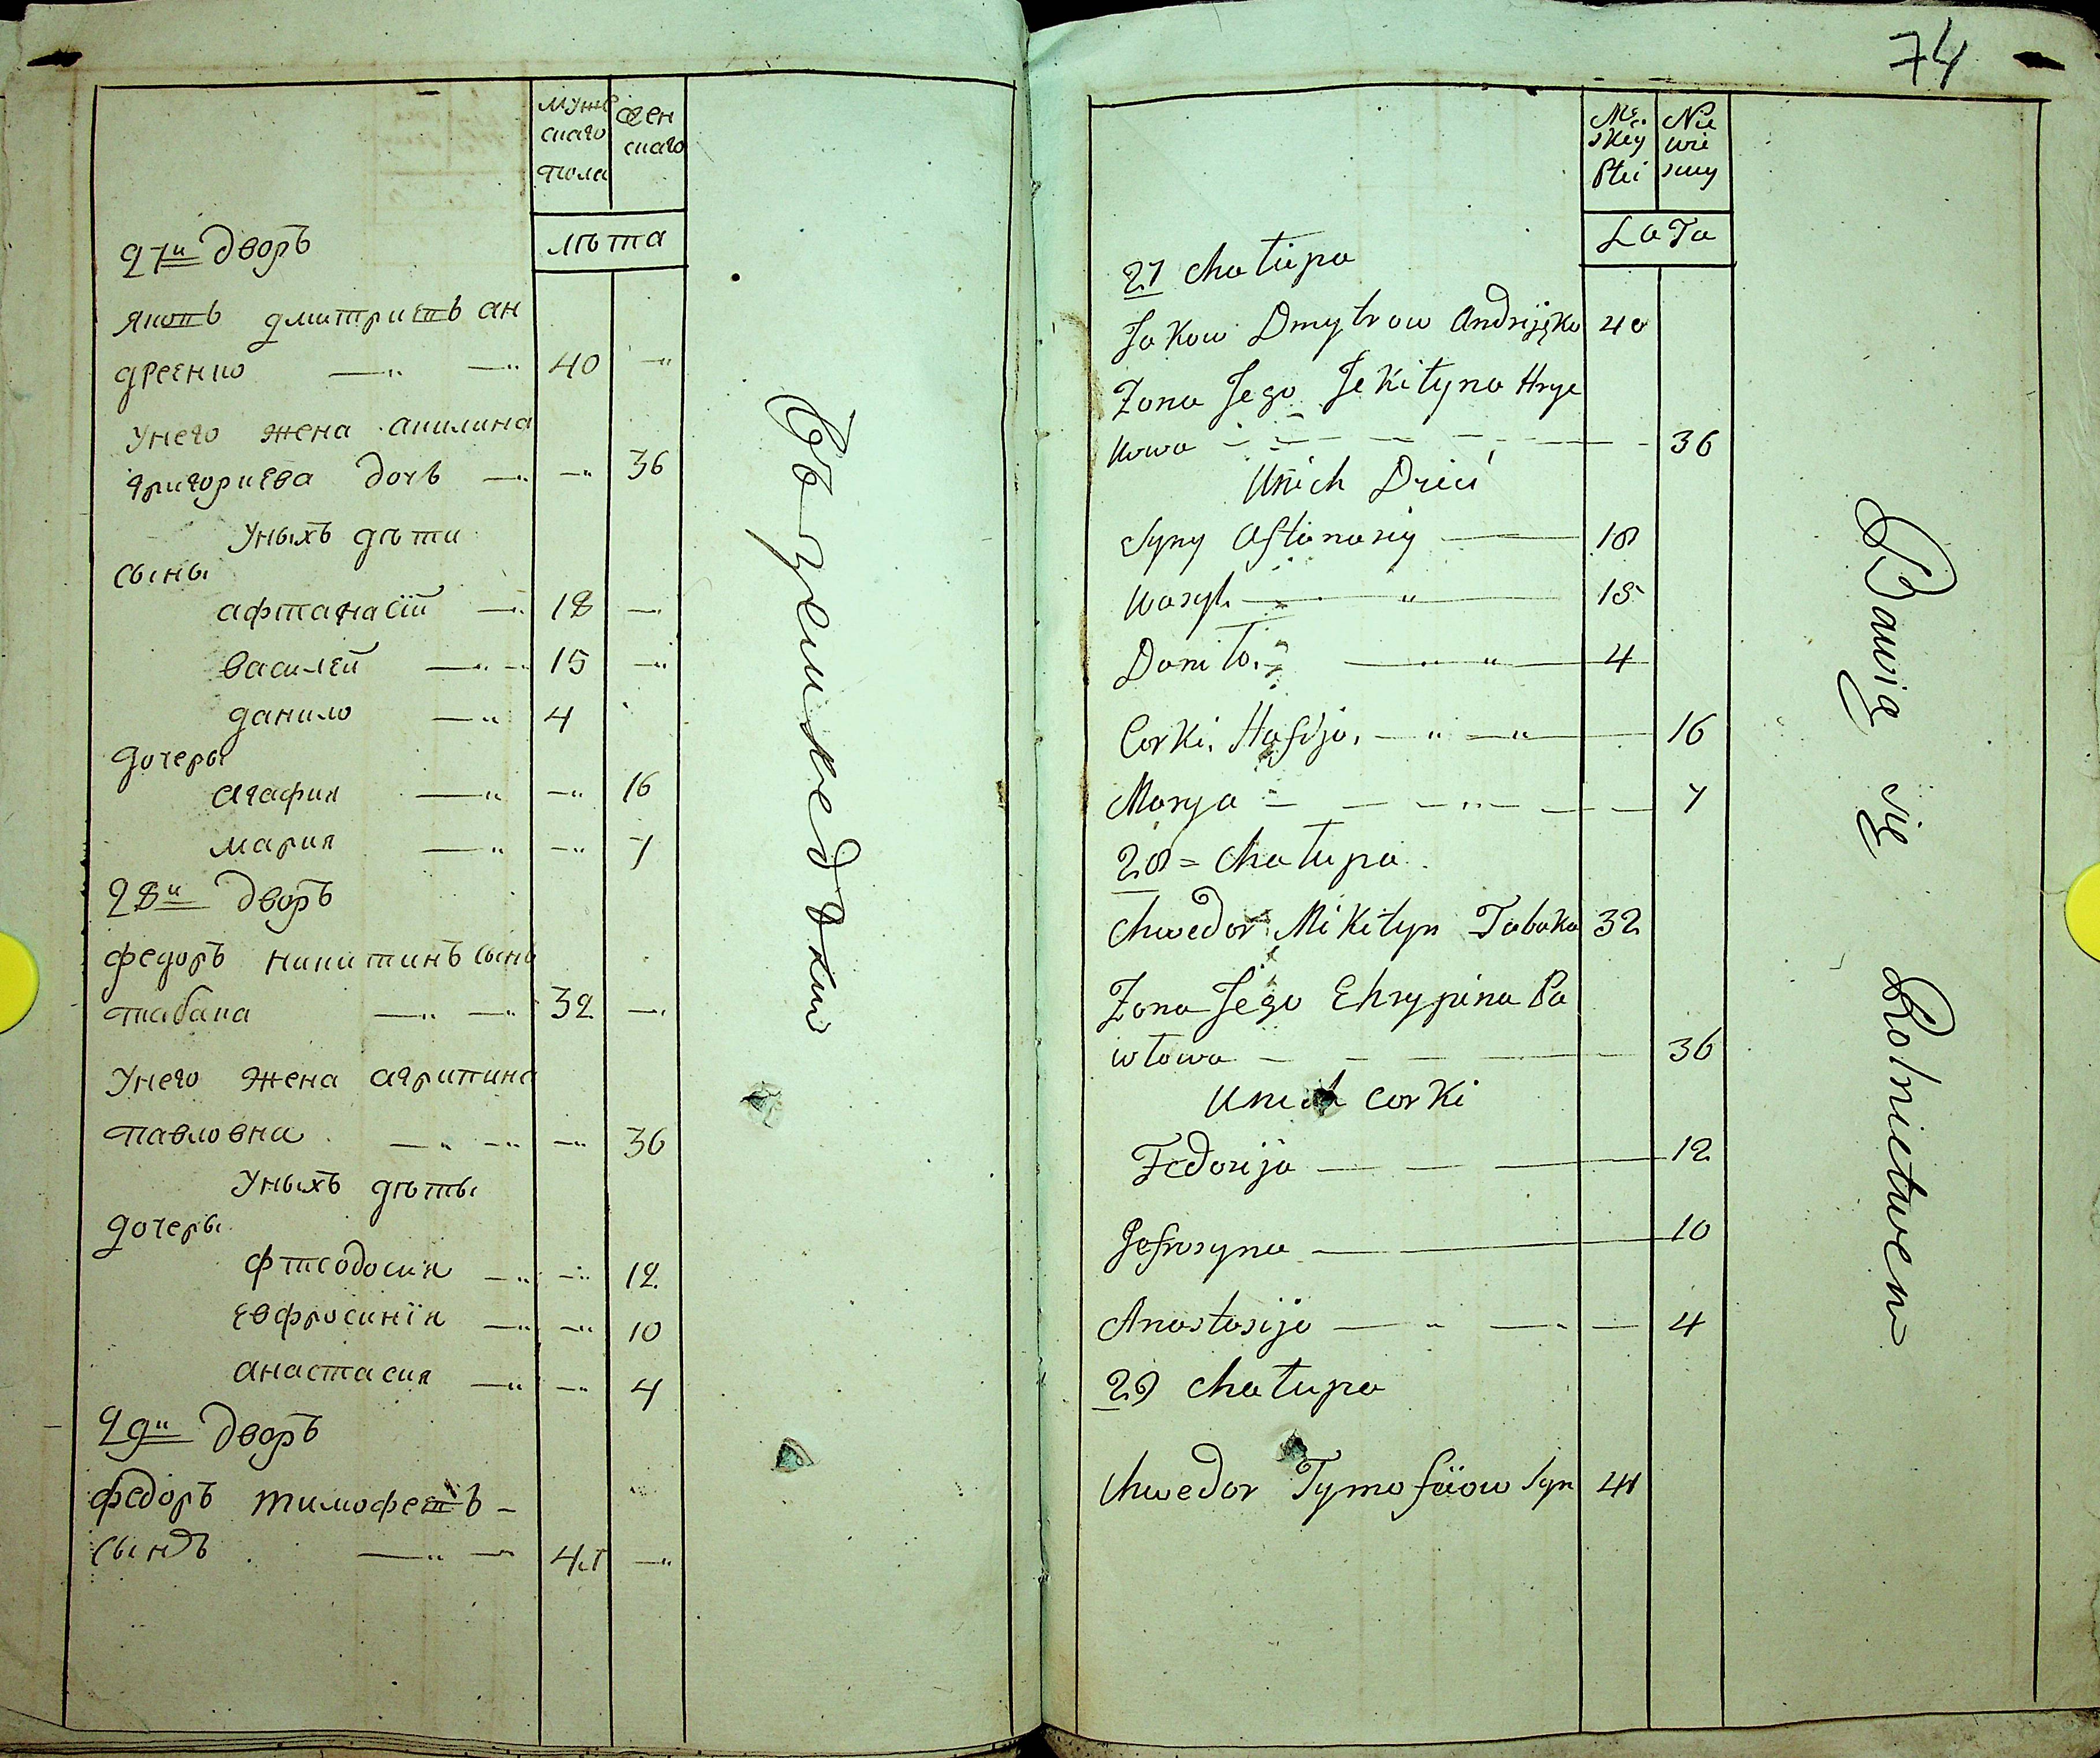 муже
скаго
пола
жен
скаго
лѣта
27й дворъ
яковъ дмитриевъ ан
дреенко 40
унего жена акилина
григориева дочь 36
уныхъ дѣти
сыны
афтанасій 18
василей 15
данило 4
дочеры
агафия 16
мария 7
28й дворъ
федоръ никитинъ сынъ
табака 32
унего жена агрипина
павловна 36
уныхъ дѣты
дочеры
фтеодосия 12
евфросинія 10
анастасия 4
29й дворъ
федоръ тимофеевъ
сынъ 41
74
Mę
skiey
Płci
Nie
wie
sciey
LaTa
27 chałupa
Jakow Dmytrow Andrijęko 40
Żona Jego Jekiłyna Hrye
howa 36
Unich Dzieci
Syny Aftanasiy 18
Wasyl 15
Daniło 4
Corki Hafija 16
Marya 7
28 = chałupa
Chwedor Mikityn Tabaka 32
Żona Jego Ehrypina Pa
włowa 36
Unich corki
Fedosija 12
Jefrosyna 10
Anastasija 4
29 chałupa
Chwedor Tymofiiow Syn 41
Bawią się Rolnictwem